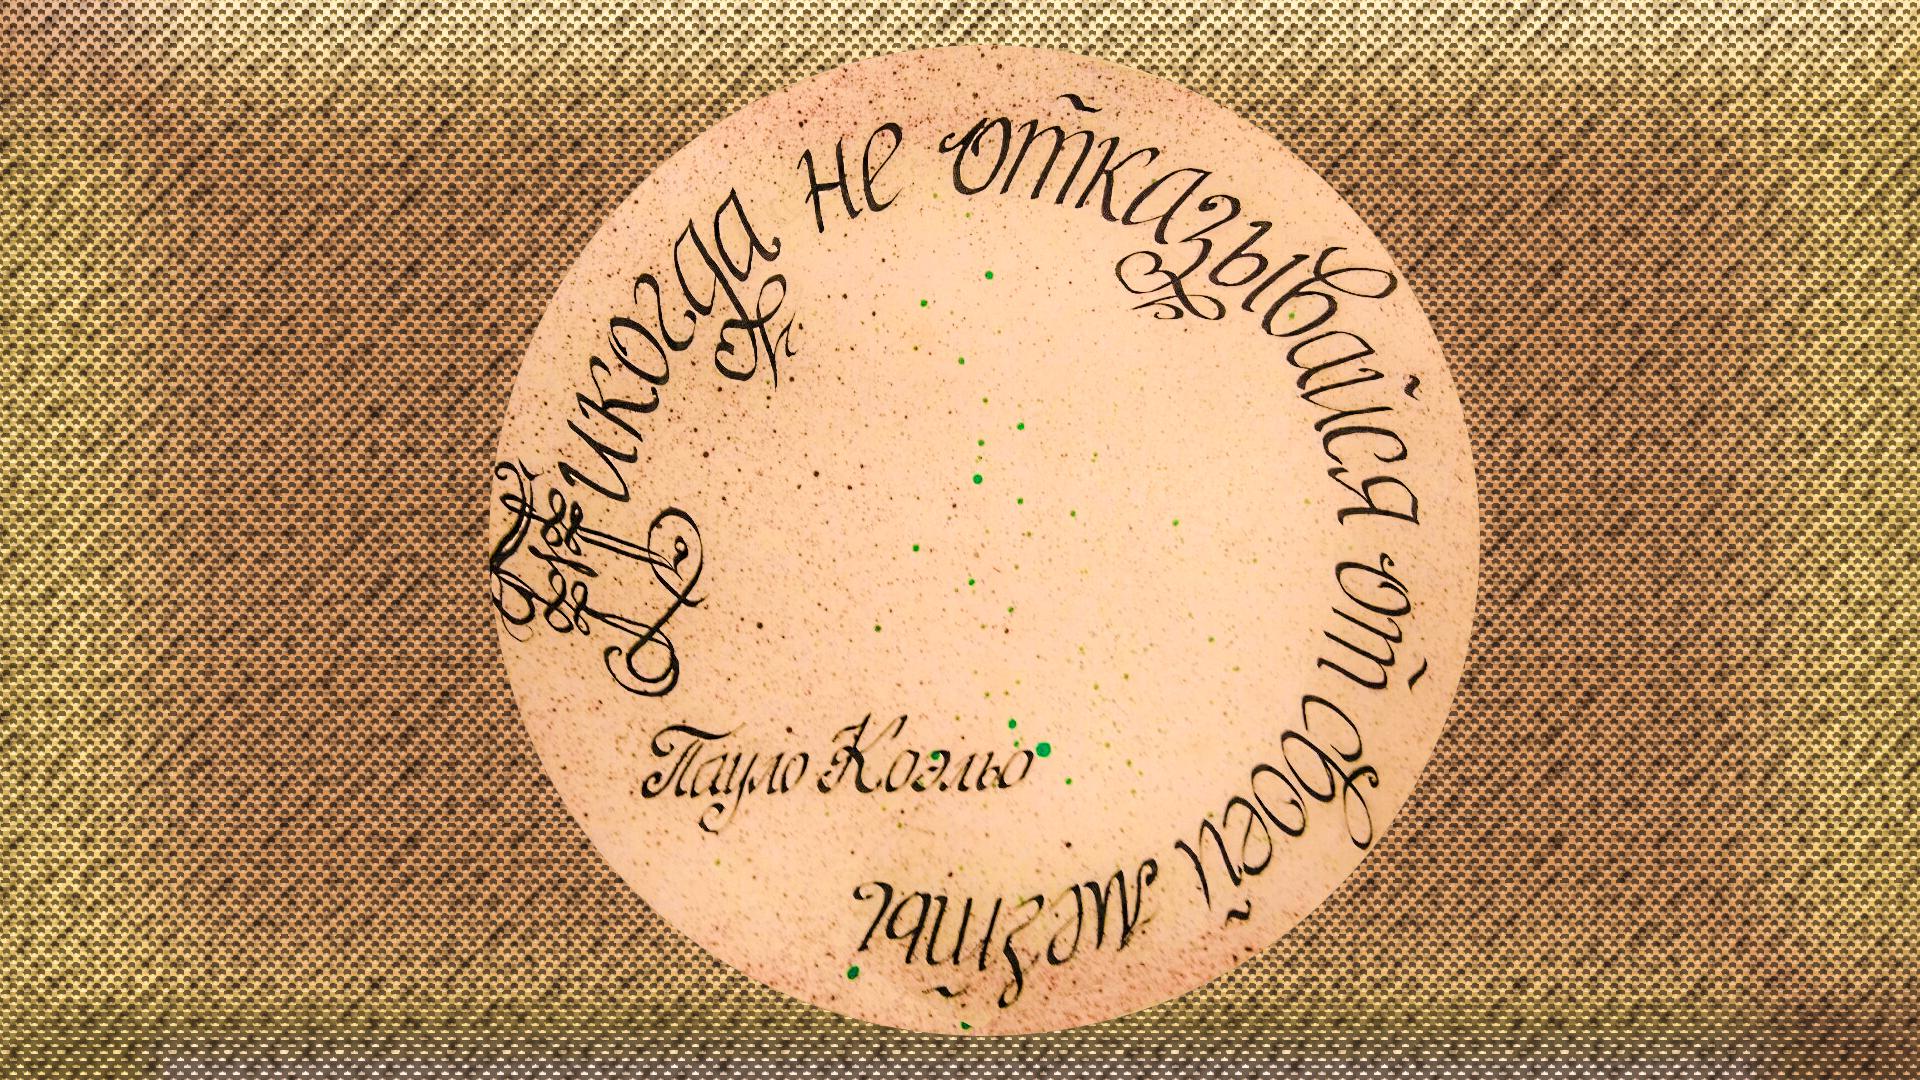 Никогда не отказывайся от своей мечты
Пауло Коэльо